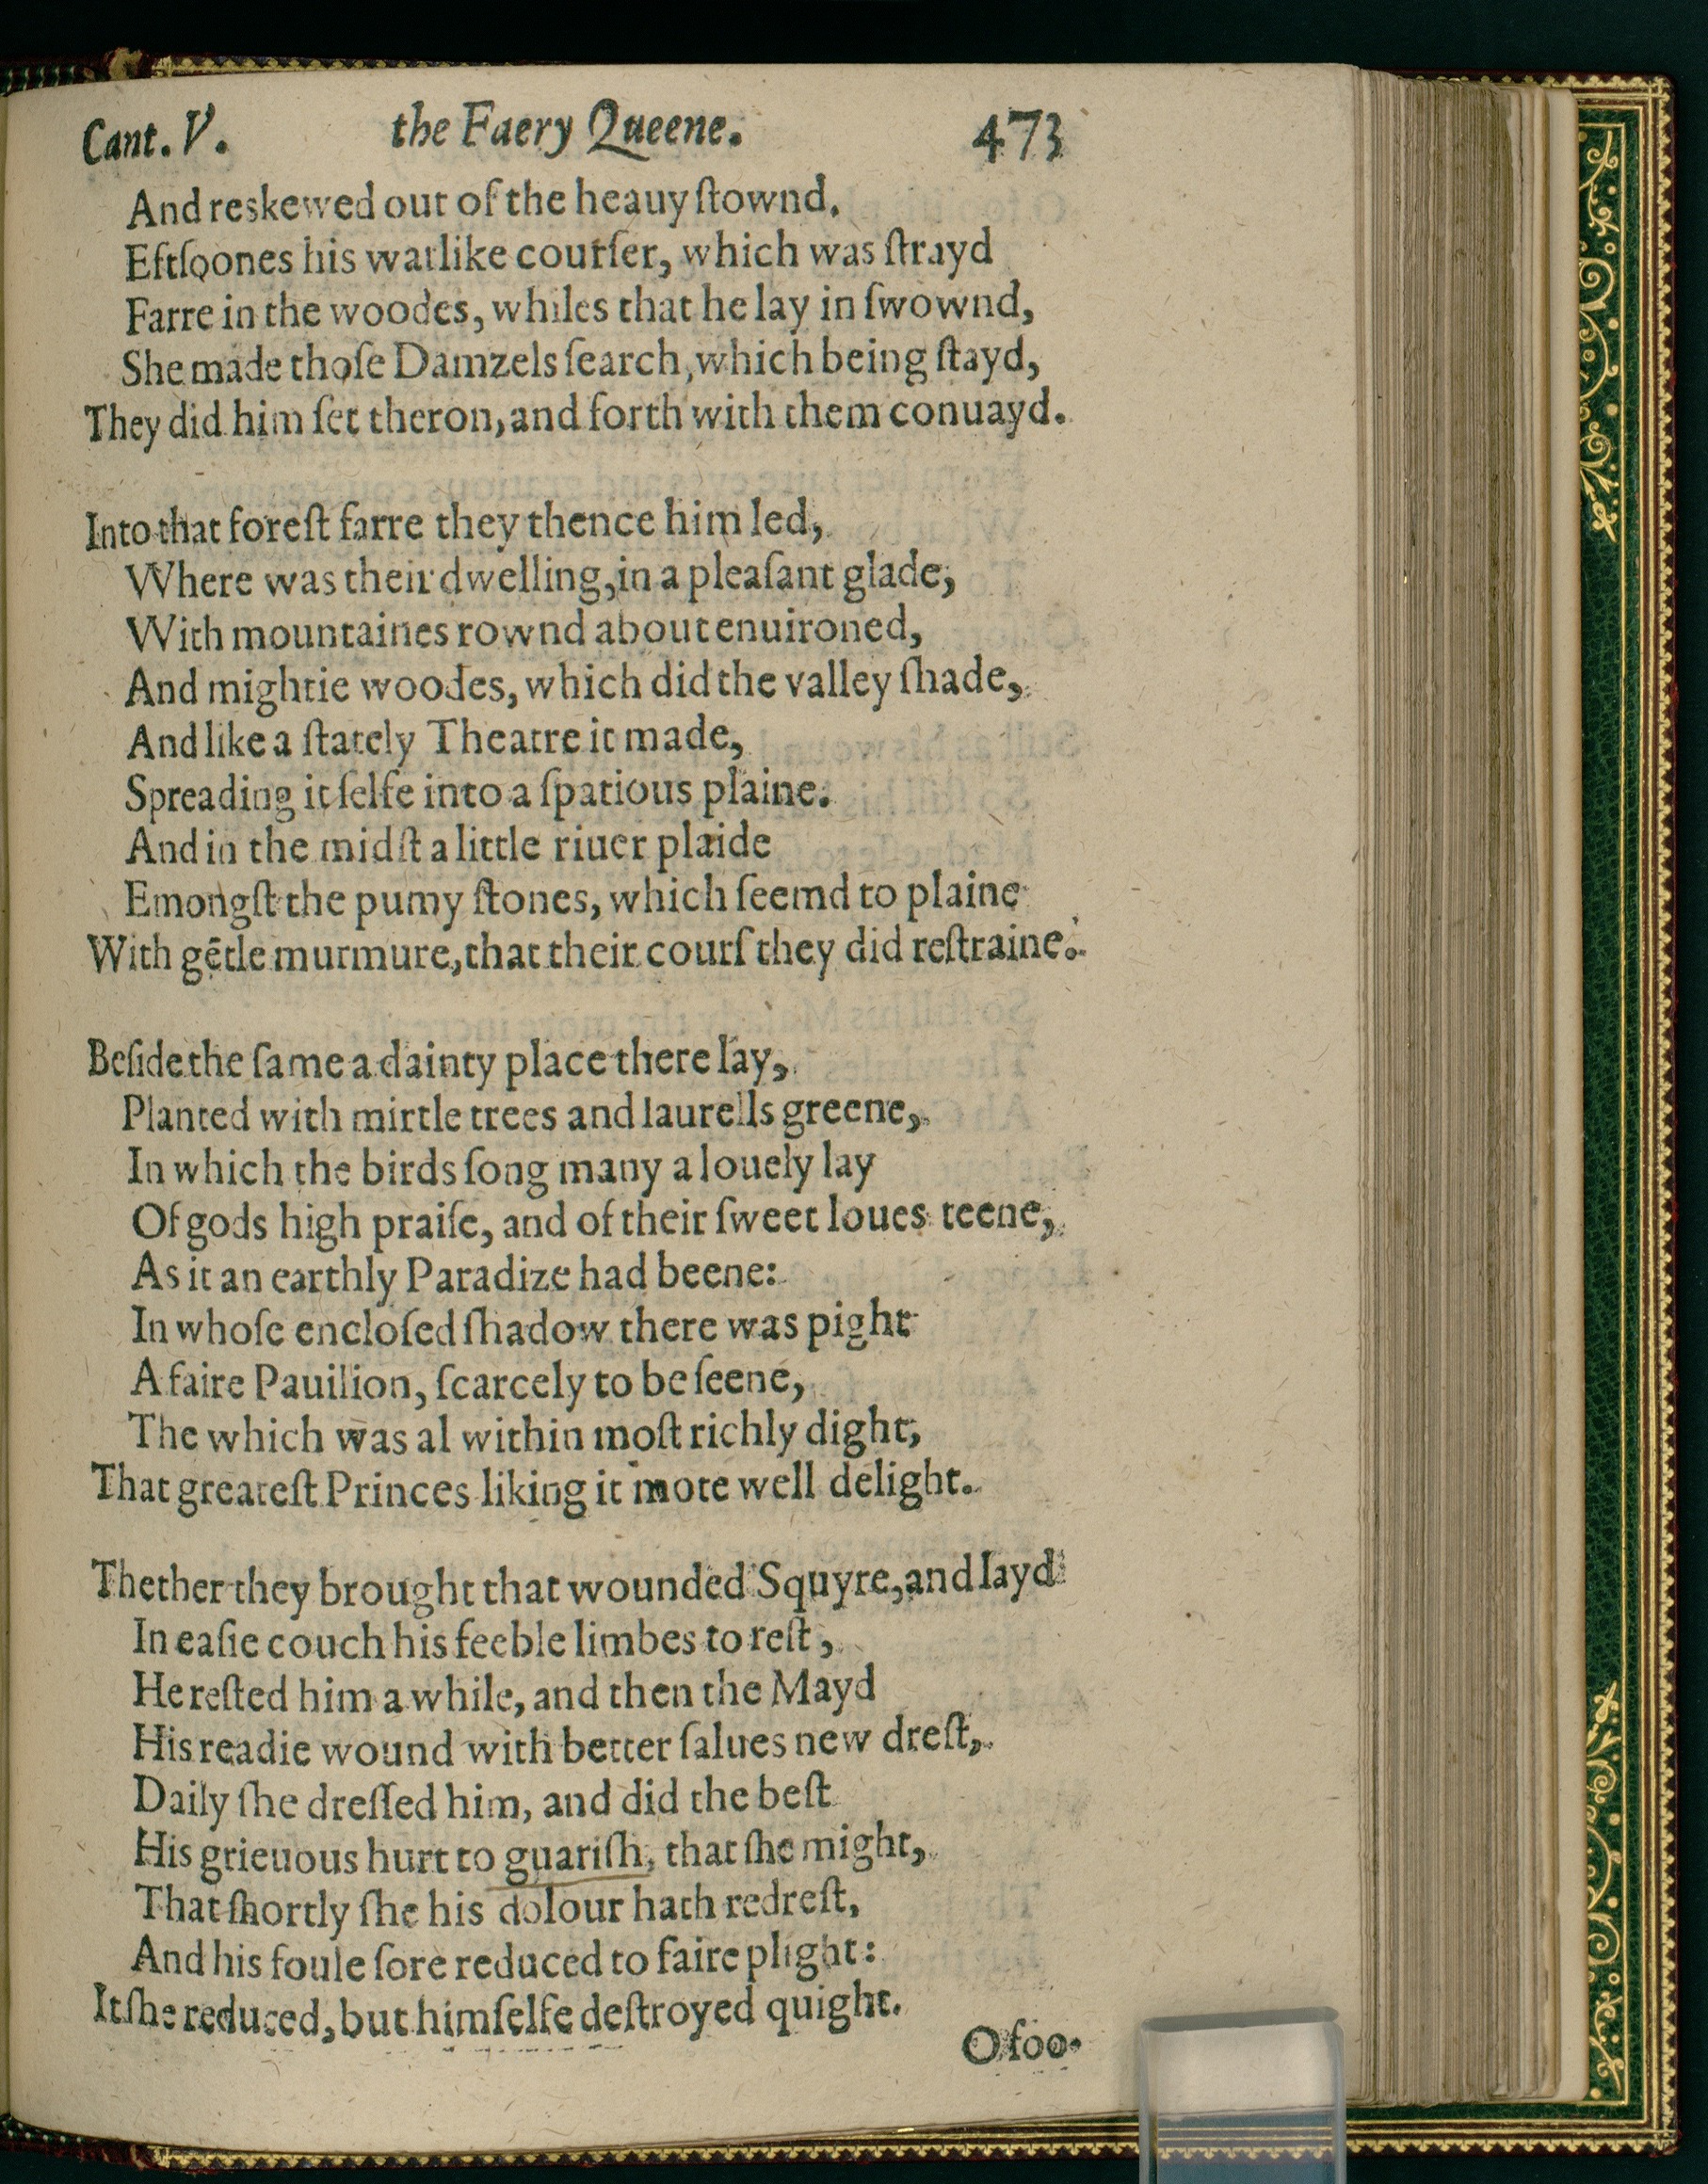 Cant. V. the Faery Queene. 473
And reskewed out of the heauy ſtownd.
Eftſoones his warlike courſer, which was ſtrayd
Farre in the woodes, whiles that he lay in ſwownd,
She made thoſe Damzels ſearch, which being ſtayd,
They did him ſet theron, and forth with them conuayd.
Into that foreſt farre they thence him led,
Where was their dwelling, in a pleaſant glade,
With mountaines rownd about enuironed,
And mightie woodes, which did the valley ſhade,
And like a ſtately Theatre it made,
Spreading it ſelfe into a ſpatious plaine.
And in the midſt a little riuer plaide
Emongſt the pumy ſtones, which ſeemd to plaine
With gẽtle murmure, that their courſ they did reſtraine.
Beſide the ſame a dainty place there lay,
Planted with mirtle trees and laurells greene,
In which the birds ſong many a louely lay
Of gods high praiſe, and of their ſweet loues teene,
As it an earthly Paradize had beene:
In whoſe encloſed ſhadow there was pight
A faire Pauilion, ſcarcely to be ſeene,
The which was al within moſt richly dight,
That greateſt Princes liking it mote well delight.
Thether they brought that wounded Squyre, and layd
In eaſie couch his feeble limbes to reſt,
He reſted him a while, and then the Mayd
His readie wound with better ſalues new dreſt,
Daily ſhe dreſſed him, and did the beſt
His grieuous hurt to guariſh, that ſhe might,
That ſhortly ſhe his dolour hath redreſt,
And his foule ſore reduced to faire plight:
It ſhe reduced, but himſelfe deſtroyed quight.
O foo-